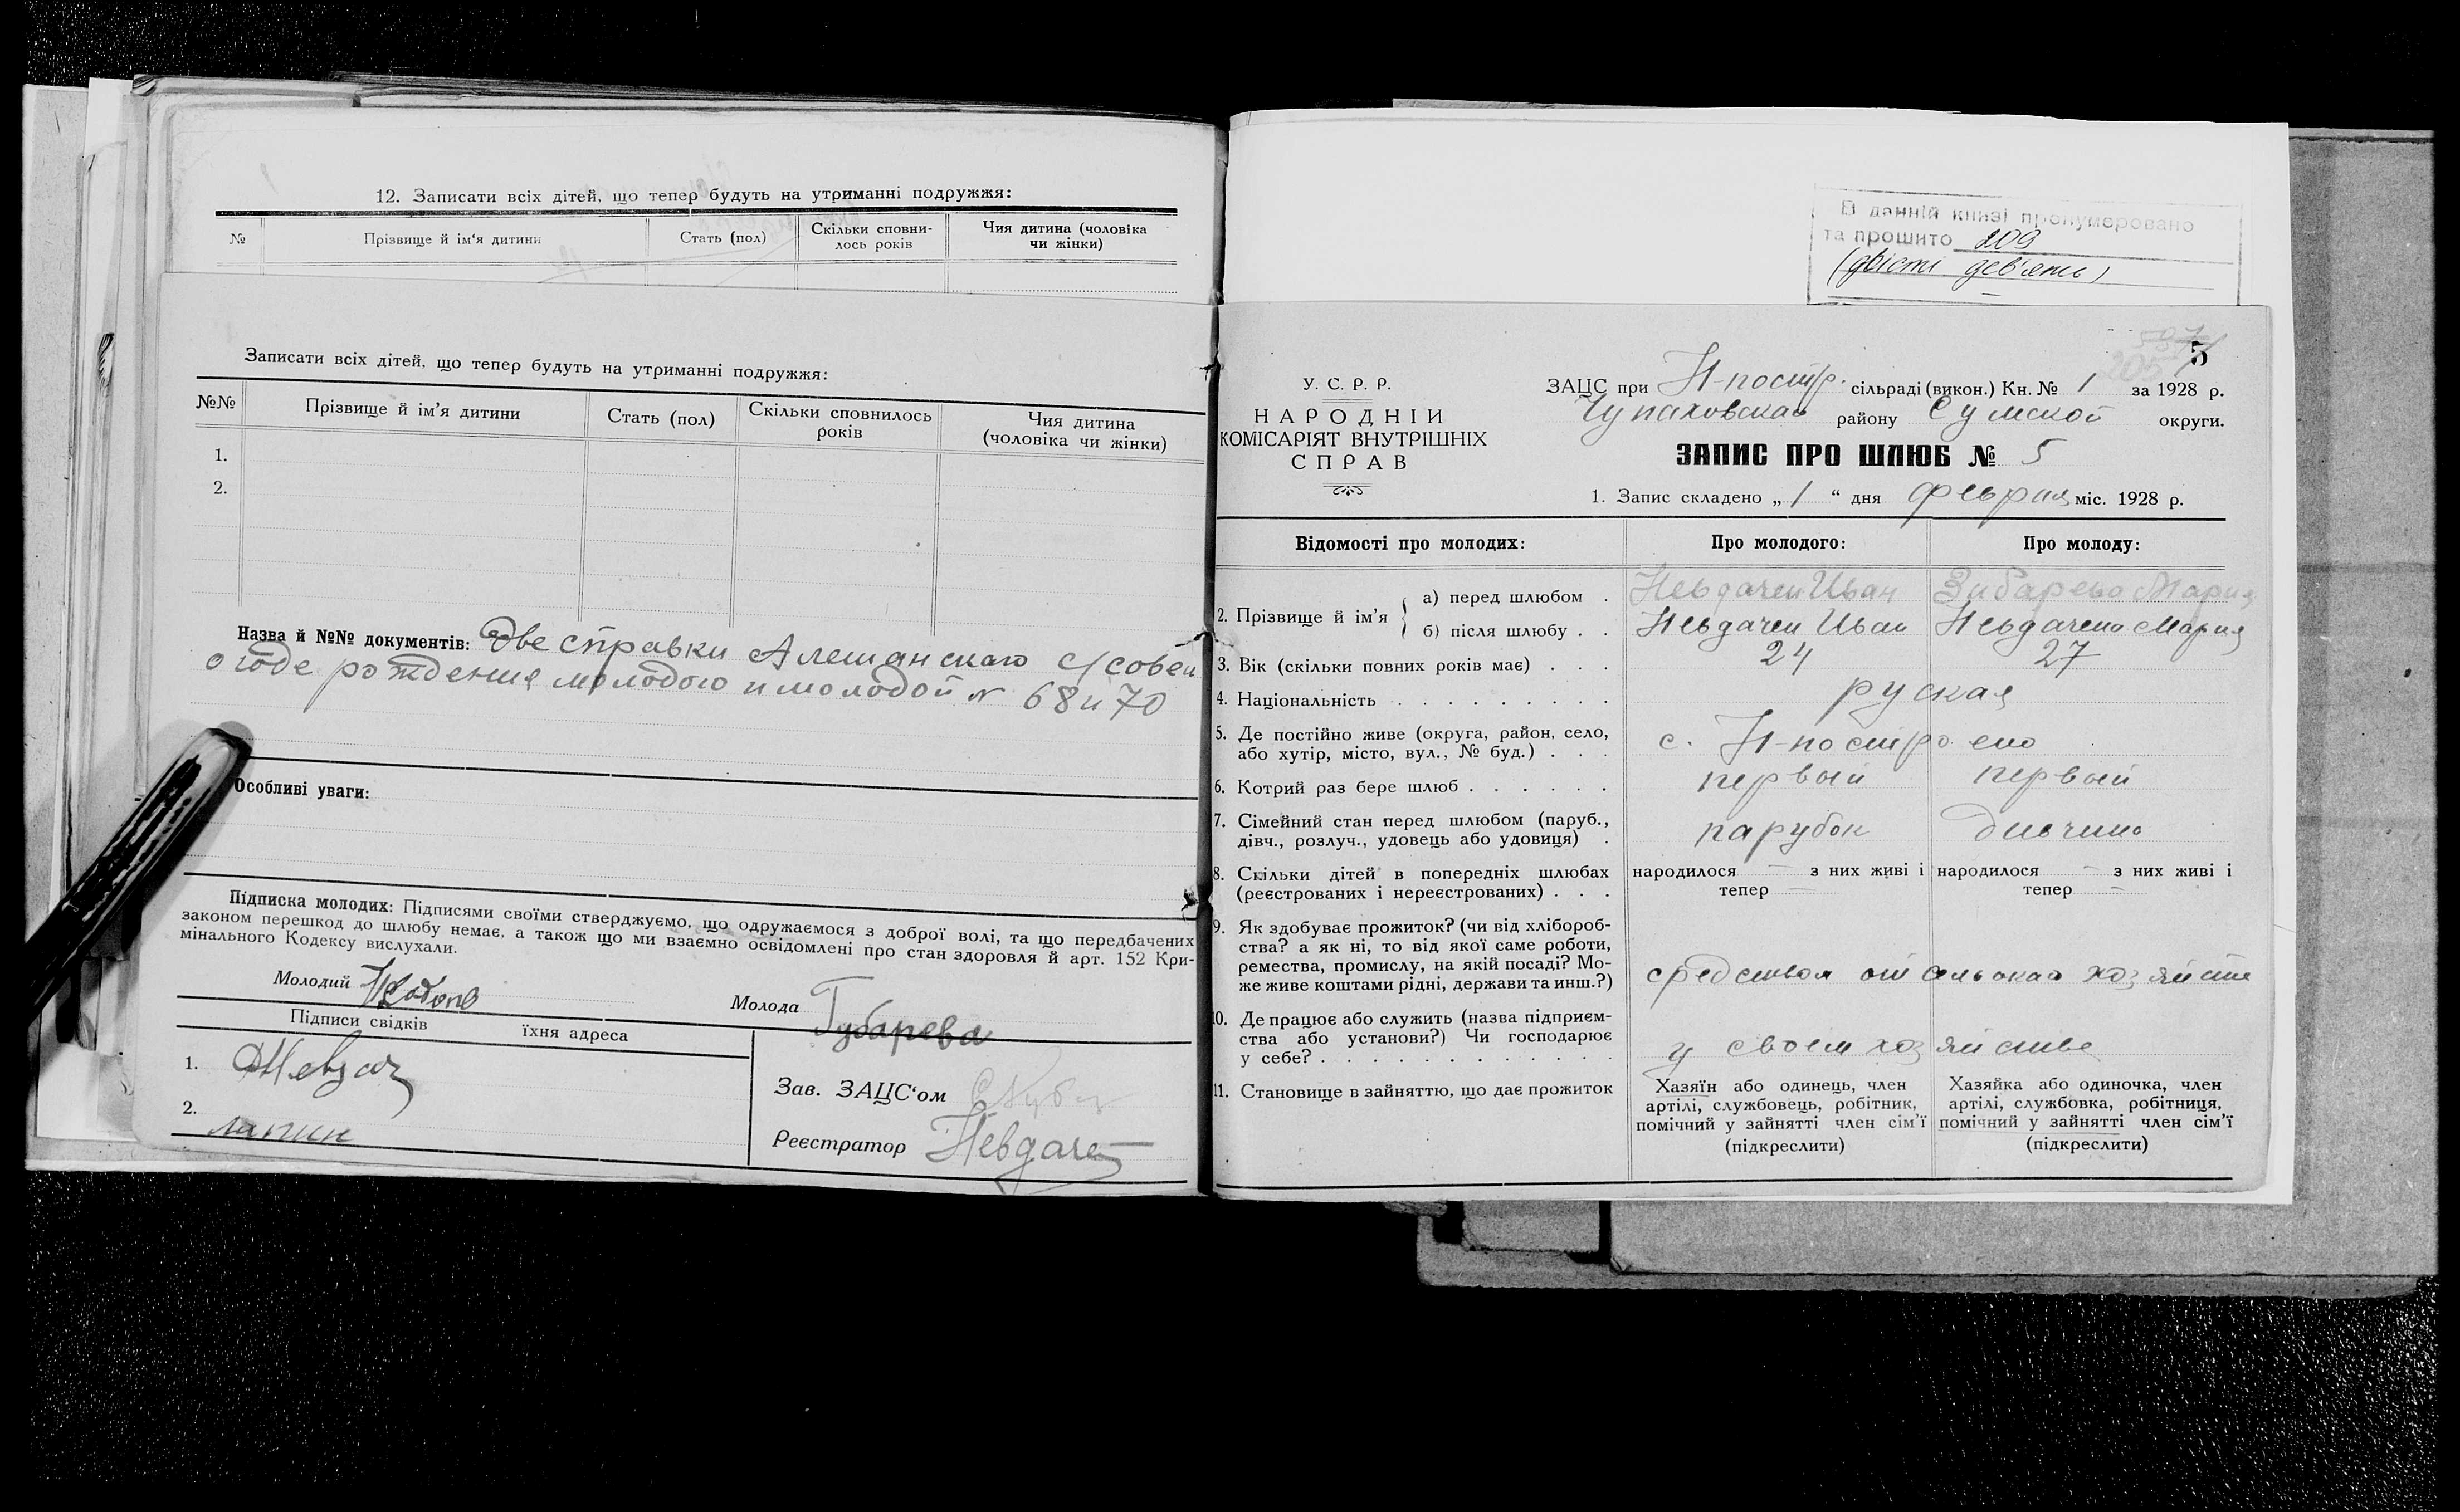 12. Записати всіх дітей, що тепер будуть на утриманні подружжя:
№ Прізвище й ім'я дитини Стать (пол) Скільки сповни-лось років Чия дитина (чоловіка чи жінки)
Записати всіх дітей, що тепер будуть на утриманні подружжя:
№№ Прізвище й ім'я дитини Стать (пол) Скільки сповнилось років Чия дитина (чоловіка чи жінки)
1.
2.
Назва й №№ документів: Две справки Алешанскаго с/совет
о годе рождения молодого и молодой № 68 и 70
Особливі уваги:
Підписка молодих: Підписями своїми стверджуємо, що одружаємося з доброї волі, та що передбачених
законом перешкод до шлюбу немає, а також що ми взаємно освідомлені про стан здоровля й арт. 152 Кри-
мінального Кодексу вислухали.
Молодий
Молода Губарева
Підписи свідків їхня адреса
1.
2.
Зав. ЗАЦС'ом
Реєстратор Невдаче
В данній книзі пронумеровано
та прошито 209
(двісті дев'ять)
5
У. С. Р. Р.
НАРОДНІЙ
КОМІСАРІЯТ ВНУТРІШНІХ
СПРАВ
ЗАЦС при Н-постр. сільраді (викон.) Кн. № 1 за 1928 р.
Чупаховскаго району Сумской округи.
ЗАПИС ПРО ШЛЮБ № 5
1. Запис складено „ 1 “ дня февраля міс. 1928 р.
Відомості про молодих: Про молодого: Про молоду:
2. Прізвище й ім'я { а) перед шлюбом . Невдачен Иван Мария
б) після шлюбу . . Невдачен Иван Невдачена Мария
3. Вік (скільки повних років має) . . . 24 27
4. Національність . . . . . . . . . руская
5. Де постійно живе (округа, район, село,
або хутір, місто, вул., № буд.) . . . с. Н-построено
6. Котрий раз бере шлюб . . . . . . первый первый
7. Сімейний стан перед шлюбом (паруб.,
дівч., розлуч., удовець або удовиця) . парубок дивчина
8. Скільки дітей в попередніх шлюбах
(реєстрованих і нереєстрованих) . . .
народилося — з них живі і тепер —
народилося — з них живі і тепер —
9. Як здобуває прожиток? (чи від хлібороб-
ства? а як ні, то від якої саме роботи,
ремества, промислу, на якій посаді? Мо-
же живе коштами рідні, держави та инш.?)
от
10. Де працює або служить (назва підприєм-
ства або установи?) Чи господарює
у себе? . . . . . . . . . . . .
у своем хозяйстве
11. Становище в зайняттю, що дає прожиток
Хазяїн або одинець, член
артілі, службовець, робітник,
помічний у зайнятті член сім'ї
(підкреслити)
Хазяйка або одиночка, член
артілі, службовка, робітниця,
помічний у зайнятті член сім'ї
(підкреслити)